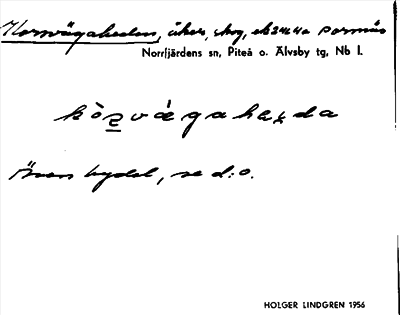 Korsvägaheden, åker, skog, ek 24K4a Pormäs
Norrfjärdens sn, Piteå o. Älvsby tg, Nb l.
kòrvágaheda
Även bydel, se d:o.
HOLGER LINDGREN 1956